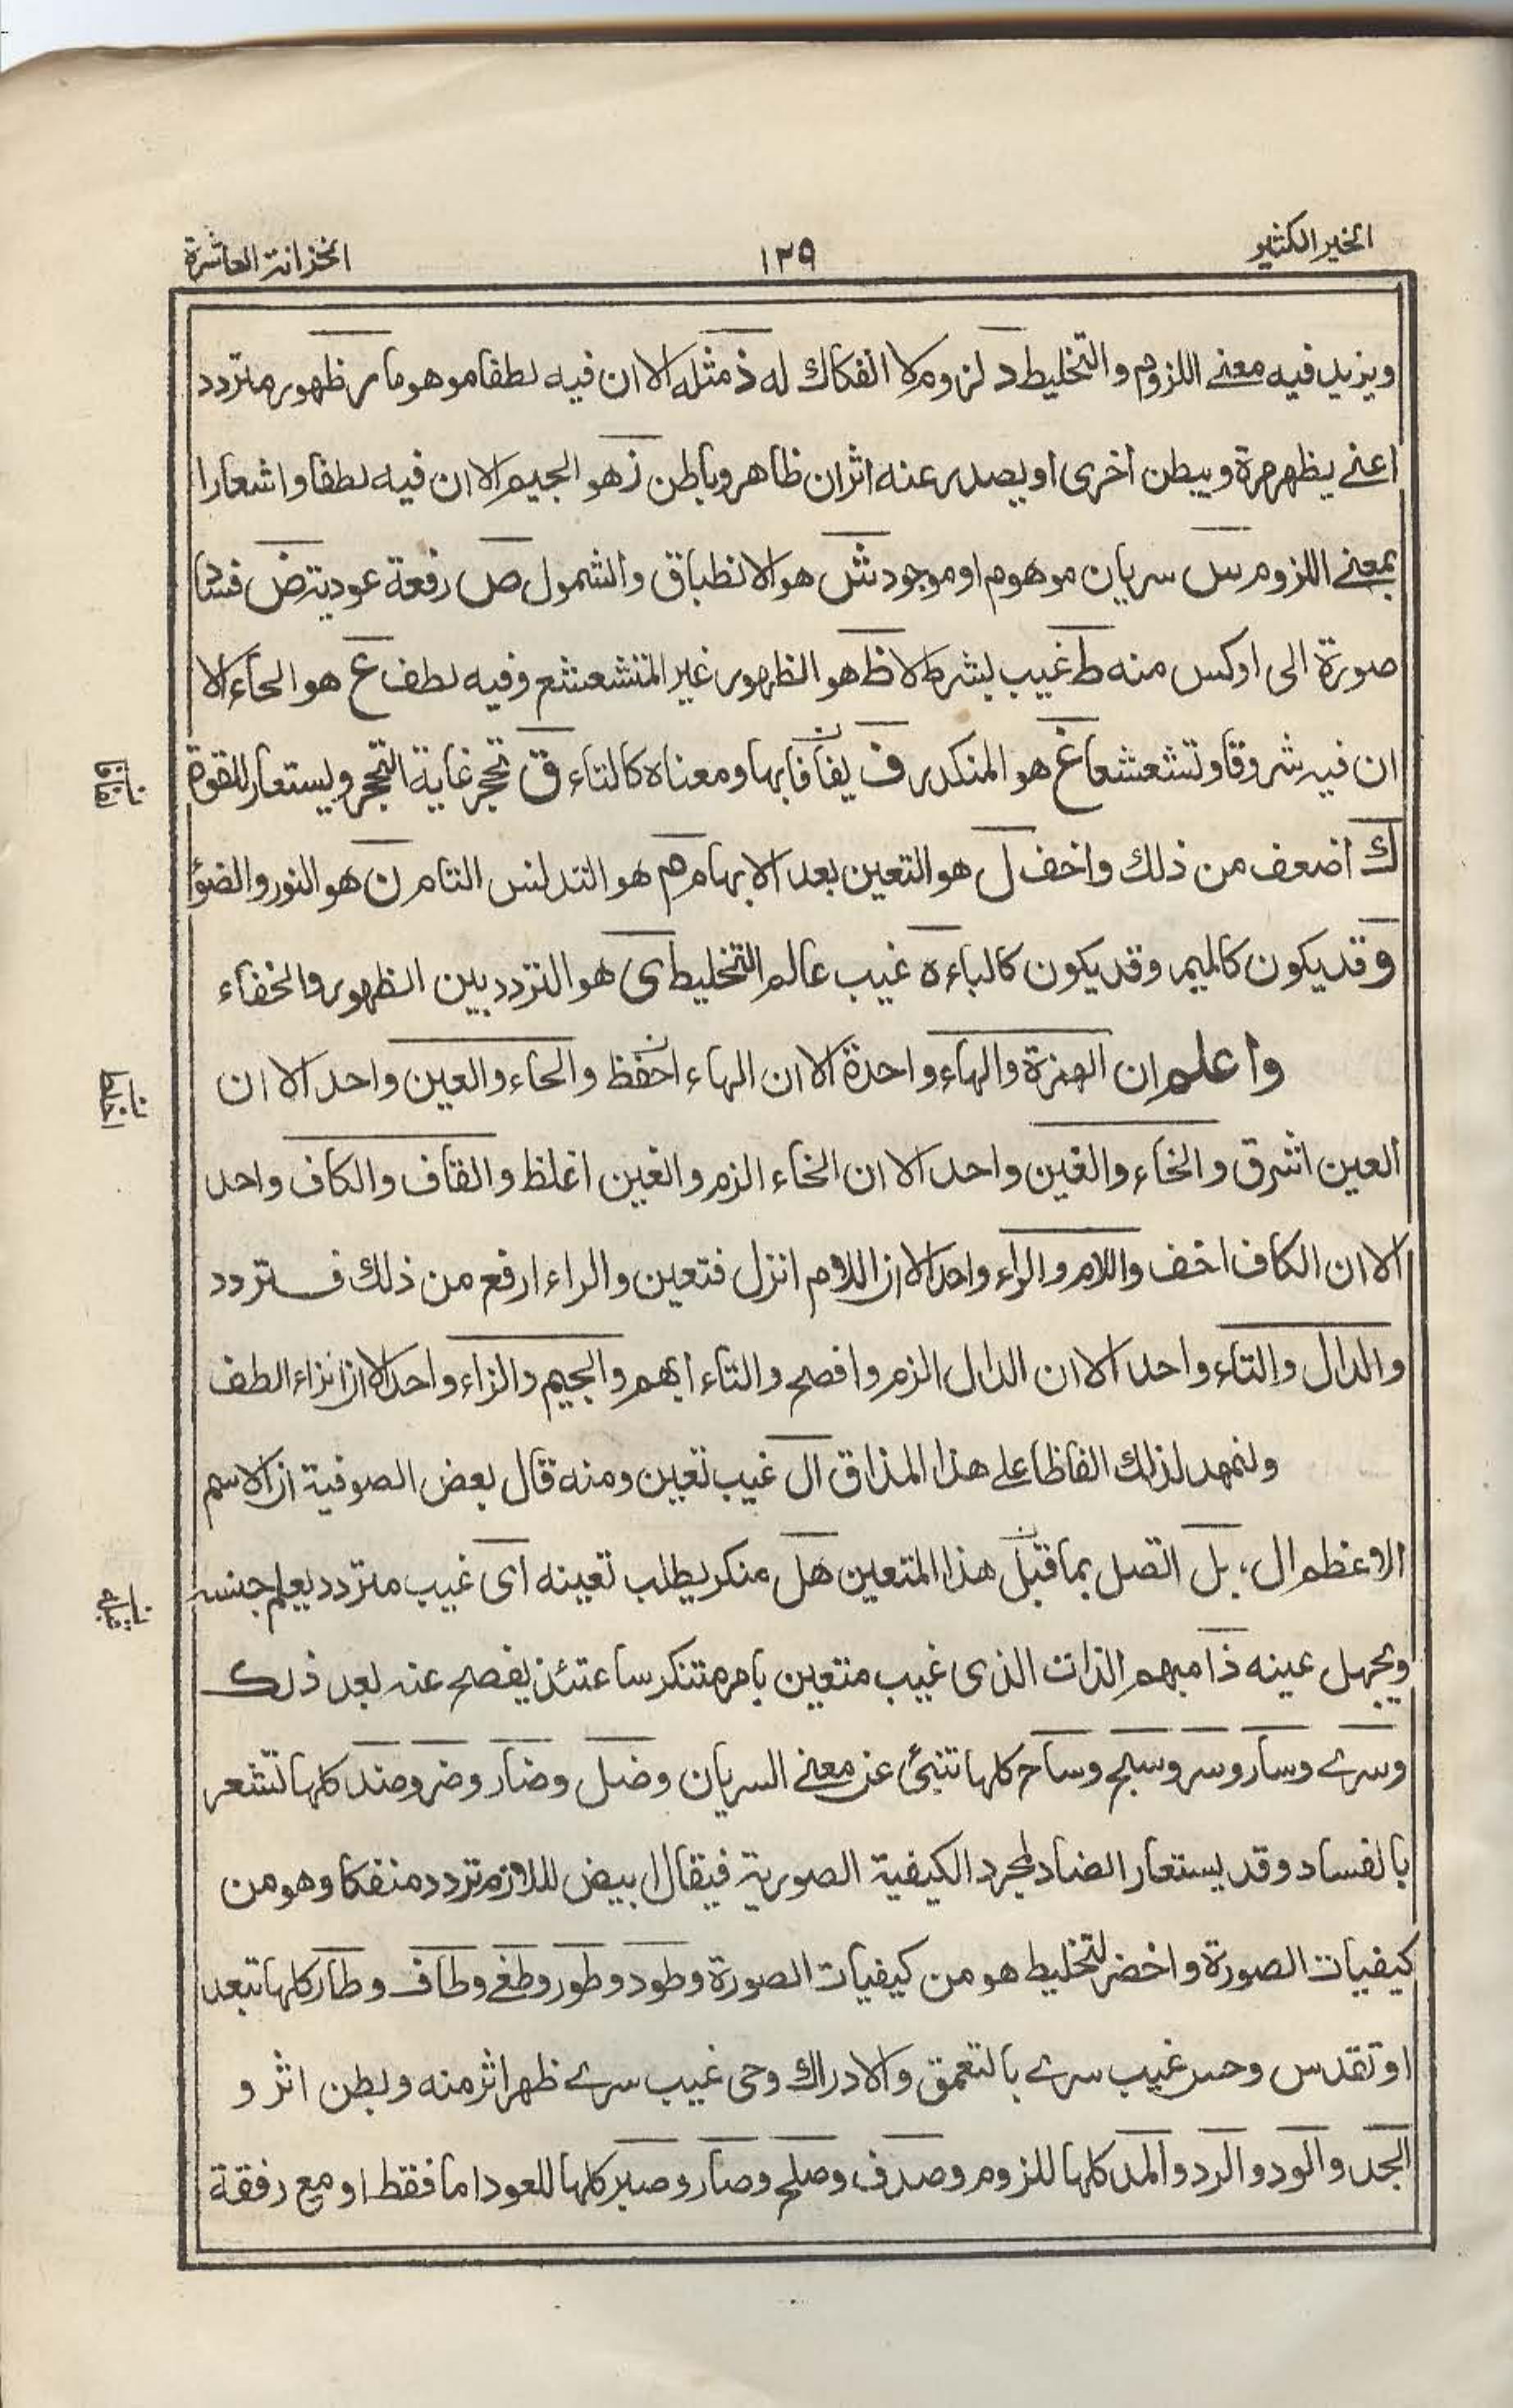 الخير الكثير
١٣٩
الخزانة العاشرة
ويزيد فيه معنى اللزوم والتخليط د لزوم لا انفكاك له ذ مثله الا ان فيه لطفا موهوما ر ظهور متردد
اعنى يظهر مرة ويبطن اخرى او يصدر عنه اثران ظاهر وباطن ز هو الجيم الا ان فيه لطفا واشعارا
بمعنى اللزوم س سريان موهوم او موجود ش هو الانطباق والشمول ص رفعة عودية ض فساد
صورة الى اوكس منه ط غيب بشرط لا ظ هو الظهور غير المتشعشع وفيه لطف ع هو الحاء الا
ان فيه شروقا وتشعشعا غ هو المنكدر ف يفأفأ بها ومعناه كالتاء ق تحجر غاية التحجر ويستعار للقوة
ك اضعف من ذلك واخف ل هو التعين بعد الابهام م هو التدلس التام ن هو النور والضوأ
و قد يكون كالميم وقد يكون كالباء ه غيب عالم التخليط ى هو التردد بين الظهور والخفاء
واعلم ان الهمزة والهاء واحدة الا ان الهاء احفظ والحاء والعين واحد الا ان
العين اشرق والخاء والغين واحد الا ان الخاء الزم والغين اغلظ والقاف والكاف واحد
الا ان الكاف اخف واللام والراء واحد الا ان اللام انزل فتعين والراء ارفع من ذلك فتردد
والدال والتاء واحد الا ان الدال الزم وافصح والتاء ابهم والجيم والزاء واحد الا ان الزاء الطف
ولنمهد لذلك الفاظا على هذا المذاق ال غيب تعين ومنه قال بعض الصوفية ان الاسم
الاعظم ال، بل اتصل بما قبل هذا المتعين هل منكر يطلب تعينه اى غيب متردد يعلم جنسه
ويجهل عينه ذا مبهم الذات الذى غيب متعين بامر متنكر ساعتئذ يفصح عنه بعد ذلك
وسرے وسار وسر وسبح وساح كلها تنبئ عن معنى السريان وضل وضار وضر وضد كلها تشعر
بالفساد وقد يستعار الضاد لمجرد الكيفية الصورية فيقال ابيض للازم تردد منفكا وهو من
كيفيات الصورة واخضر لتخليط هو من كيفيات الصورة وطود وطور وطغى وطاف وطار كلها تبعد
او تقدس وحس غيب سرے بالتعمق والادراك وحى غيب سرے ظهر اثر منه وبطن اثر و
الجد والود والرد والمد كلها للزوم وصدف وصلح وصار وصبر كلها للعود اما فقط او مع رفقة